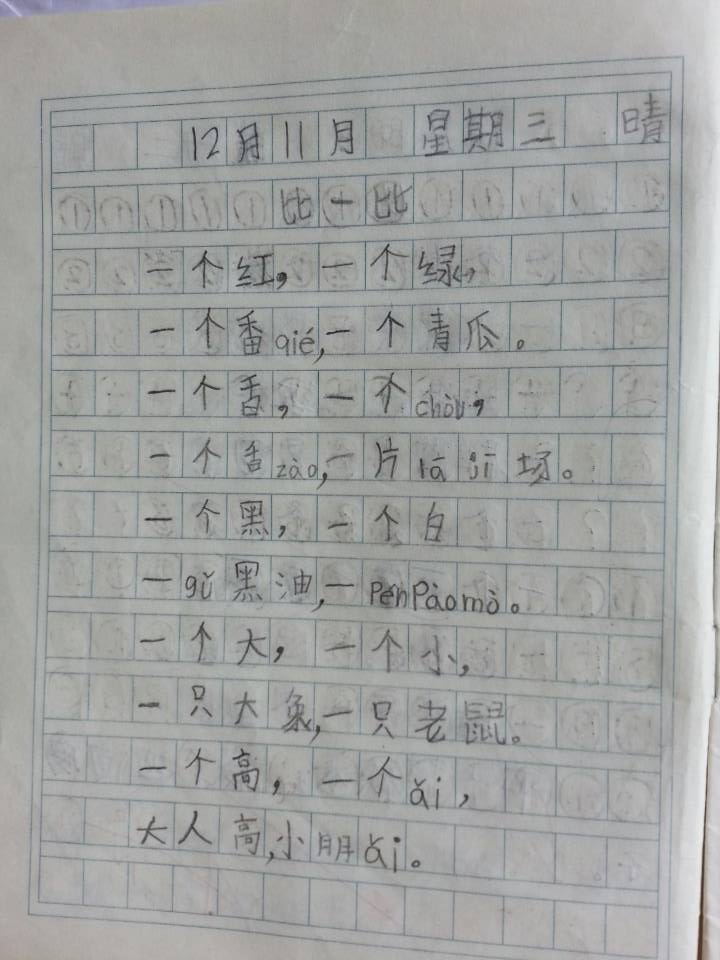 12月11月 星期三 晴
比一比
一个红，一个绿，
一个番qié，一个青瓜。
一个香，一个chòu，
一个舌zào，一片lā jī场。
一个黑，一个白
一gǔ黑油，一pénpàomò。
一个大，一个小，
一只大象，一只老鼠。
一个高，一个ǎi，
大人高，小朋ǎi。